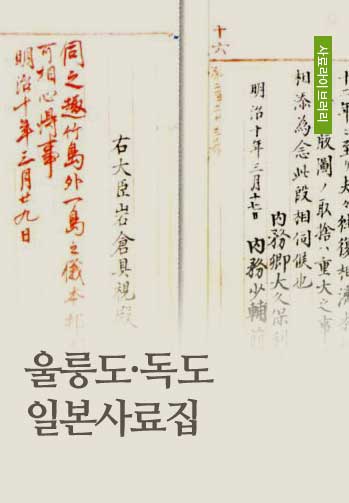 사료라이브러리
版圖ノ取捨ハ重大之事
相添為念此段相伺候也
明治十年三月十七日
内務卿大久保利
内務少輔前
十六
右大臣岩倉具視殿
伺之趣竹島外一島之儀本邦
可相心得事
明治十年三月廿九日
울릉도·독도
일본사료집